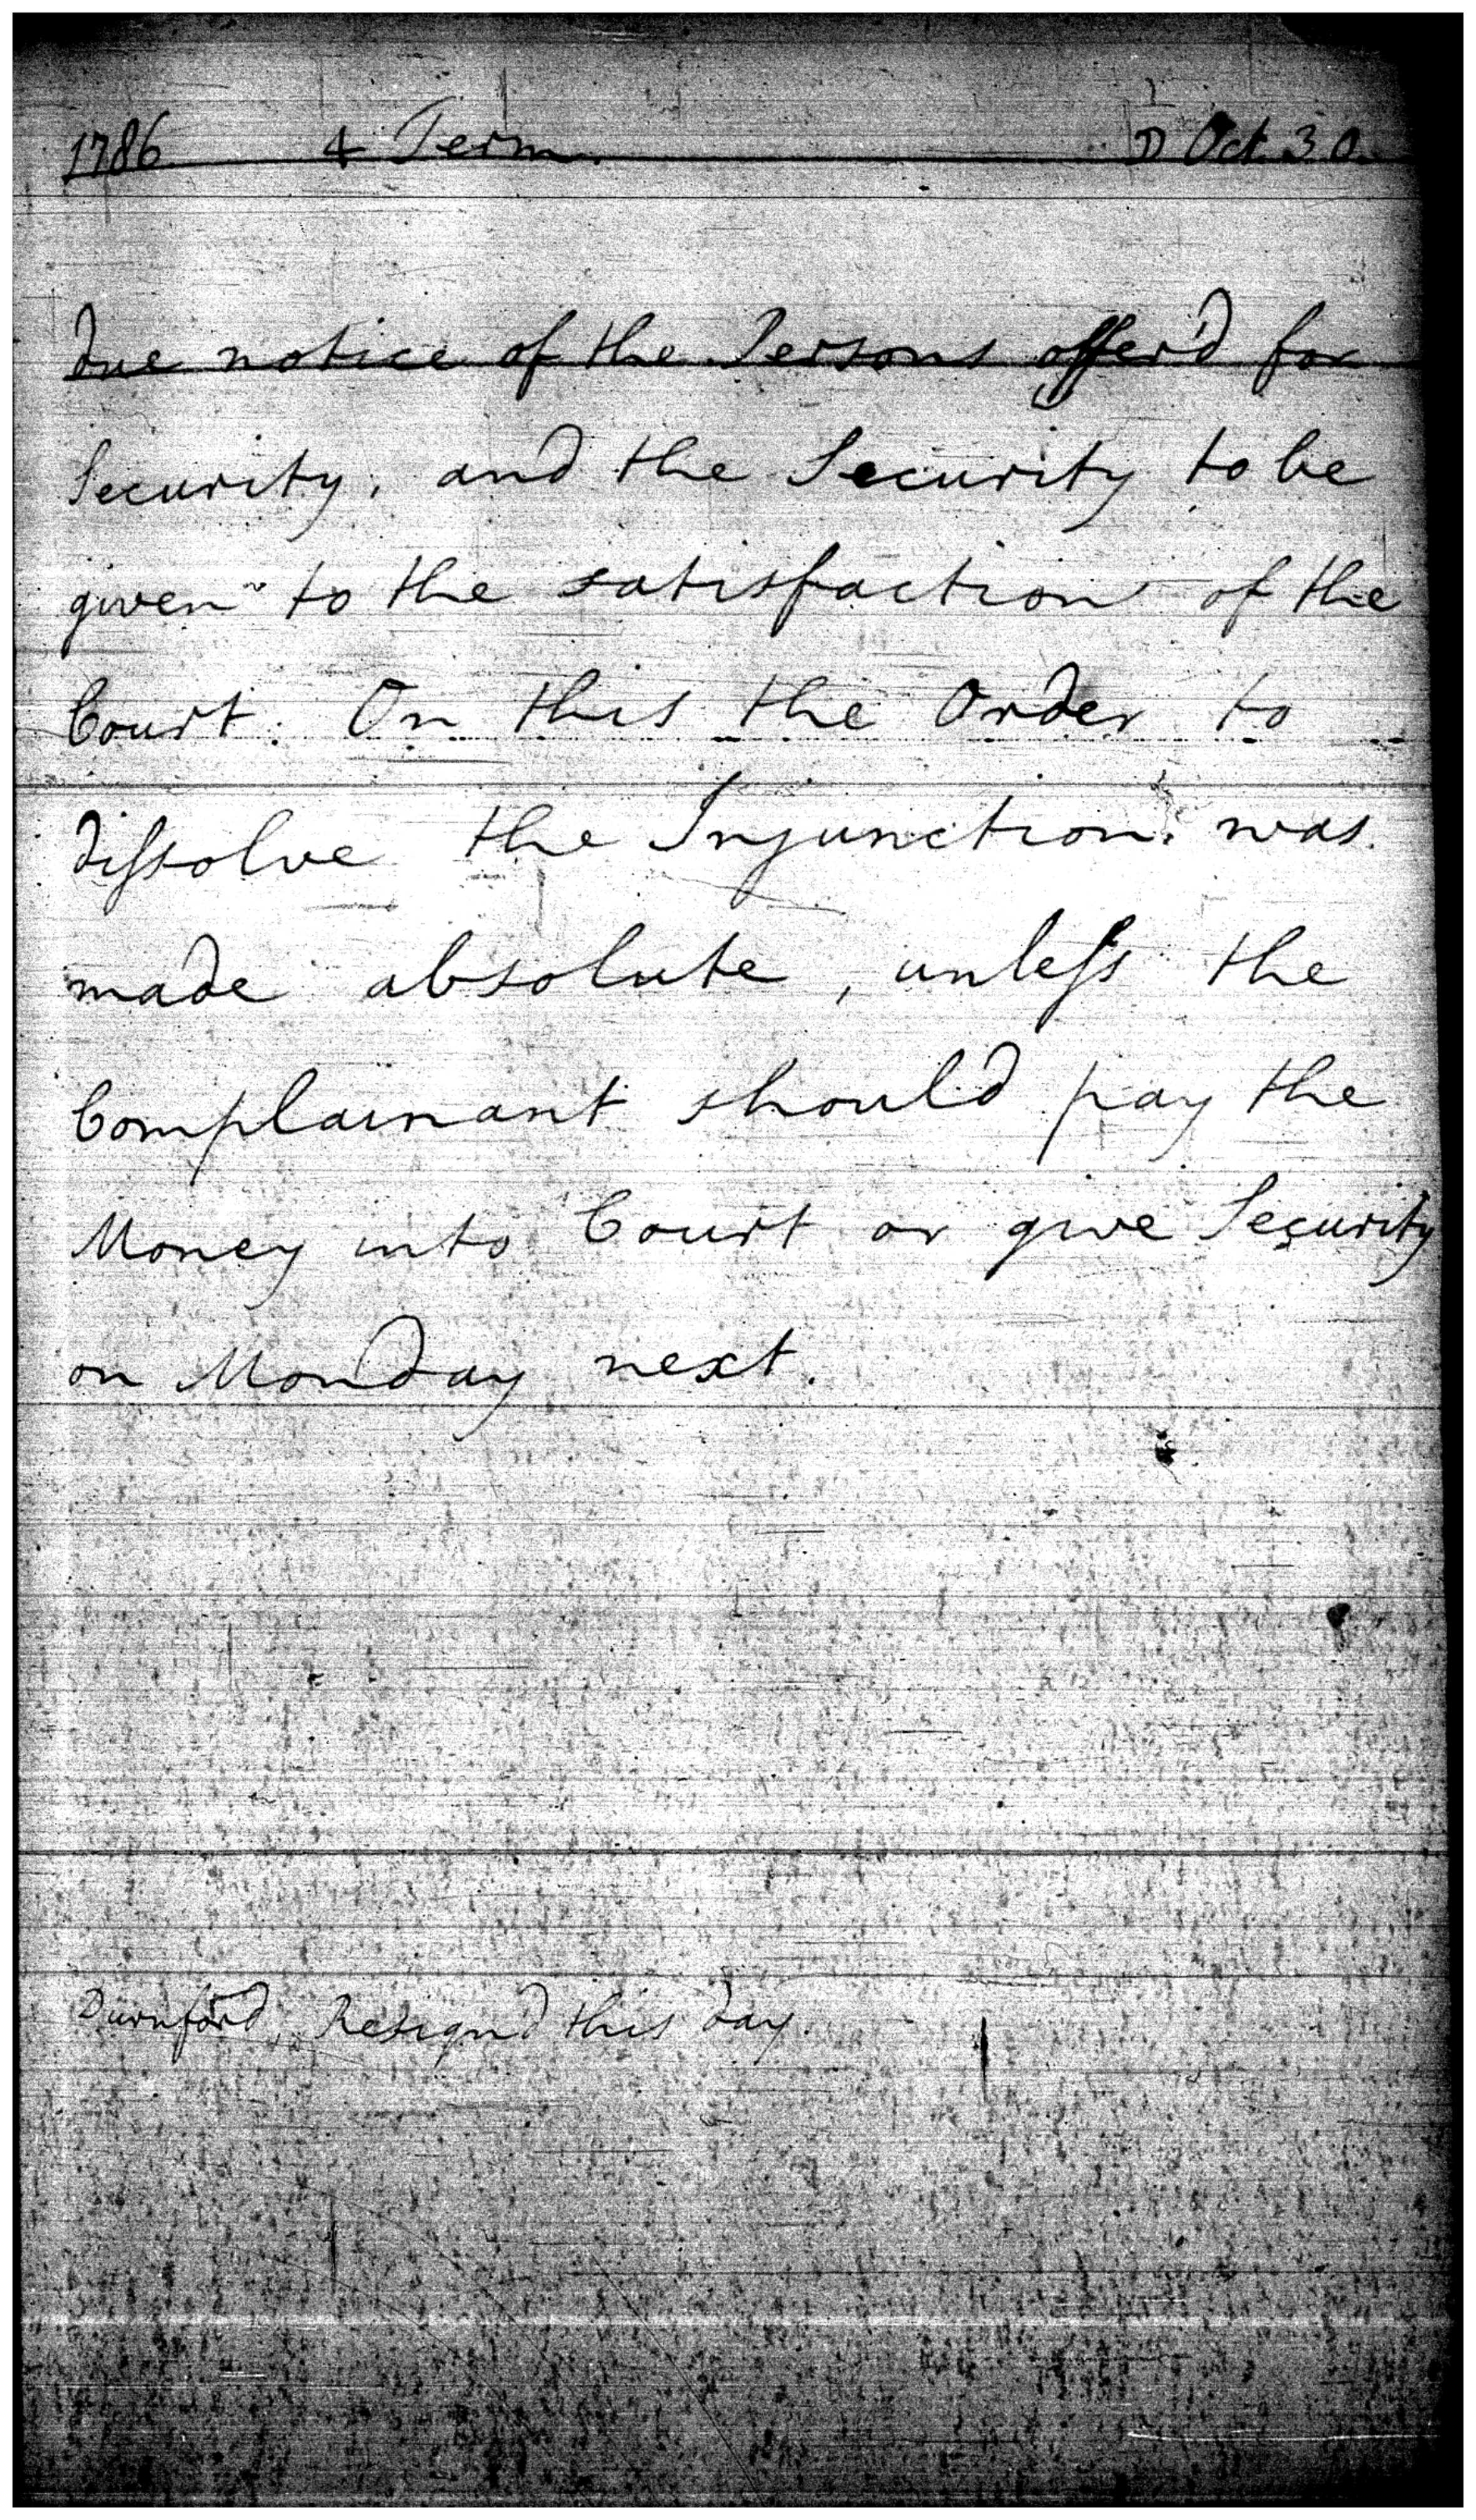 1786 4 Term. ☽ Oct. 30.
due notice of the Persons offer'd for
Security, and the Security to be
given to the satisfaction of the
Court. On this the Order to
dissolve the Injunction was
made absolute, unless the
Complainant should pay the
Money into Court or give Security
on Monday next.
Durnford, Resign'd this day.